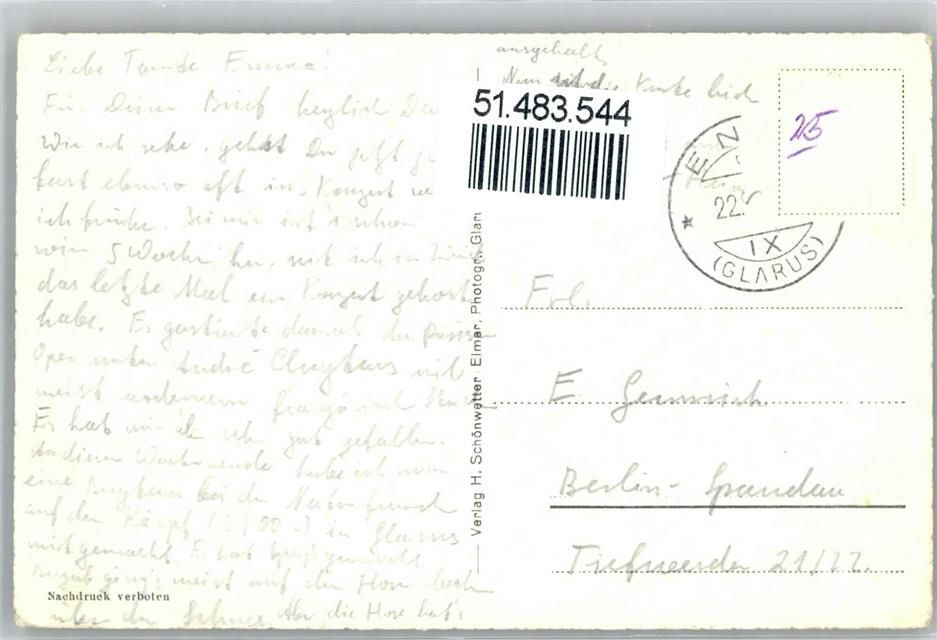 Liebe Tante Emma!
Für Deinen Brief herzlich
Wie ich sehe, gehst Du jetzt
fast ebenso oft ins Konzert
ich früher. Bei mir ist's schon
5 Wochen her, seit ich in Zürich
das letzte Mal ein Konzert gehört
habe. Es gastierte damals die Pariser
Oper unter André Cluytens mit
meist modernem
Es hat mir sehr gut gefallen.
An diesem Wochenende habe ich nun
eine Bergtour bei den Naturfreunden
auf den Kärpf in Glarus
mitgemacht. Es hat Spass gemacht.
Bergab ging's meist auf den Hosen
über den Schnee. Aber die Hose hat's
Nachdruck verboten
ausgehalten
Nun die Karte
51.483.544
Verlag H. Schönwetter-Elmer, Photogr. Glarus
25
22.
IX
(GLARUS)
Frl.
E. Gemmrich
Berlin-Spandau
Tiefwerder 21/22.